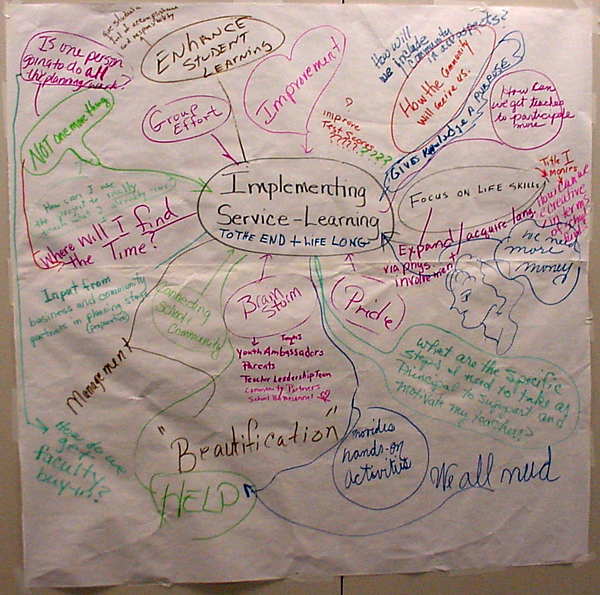 Is one person
going to do all
the planning/work?
give students
and responsibility
ENHANCE
STUDENT
LEARNING
Improvement
How will
we include
community
in all aspects?
How the community
will receive us.
GIVES KNOWLEDGE A PURPOSE
How can
we get teachers
to participate
more
NOT one more thing
Group
Effort
?
improve
Test Scores
????????
Implementing
Service-Learning
TO THE END + LIFE LONG
FOCUS ON LIFE SKILLS
Title I
Monies
How can we
be creative
in terms
of
How can I use
the project to really
teach what I already
Where will I find
the Time?
Expand/acquire land
via phys.
involvement
we need
more
money
Input from
business and community
partners in planning stage
connecting
school &
community
Brain
Storm
Pride
Youth Ambassadors
Parents
Teacher Leadership Team
Community Partners
School Bd Personnel
Management
What are the specific
steps I need to take as
Principal to support and
motivate my teachers?
"Beautification"
provides
hands-on
activities
How to
get
faculty
buy-in?
HELP
We all need